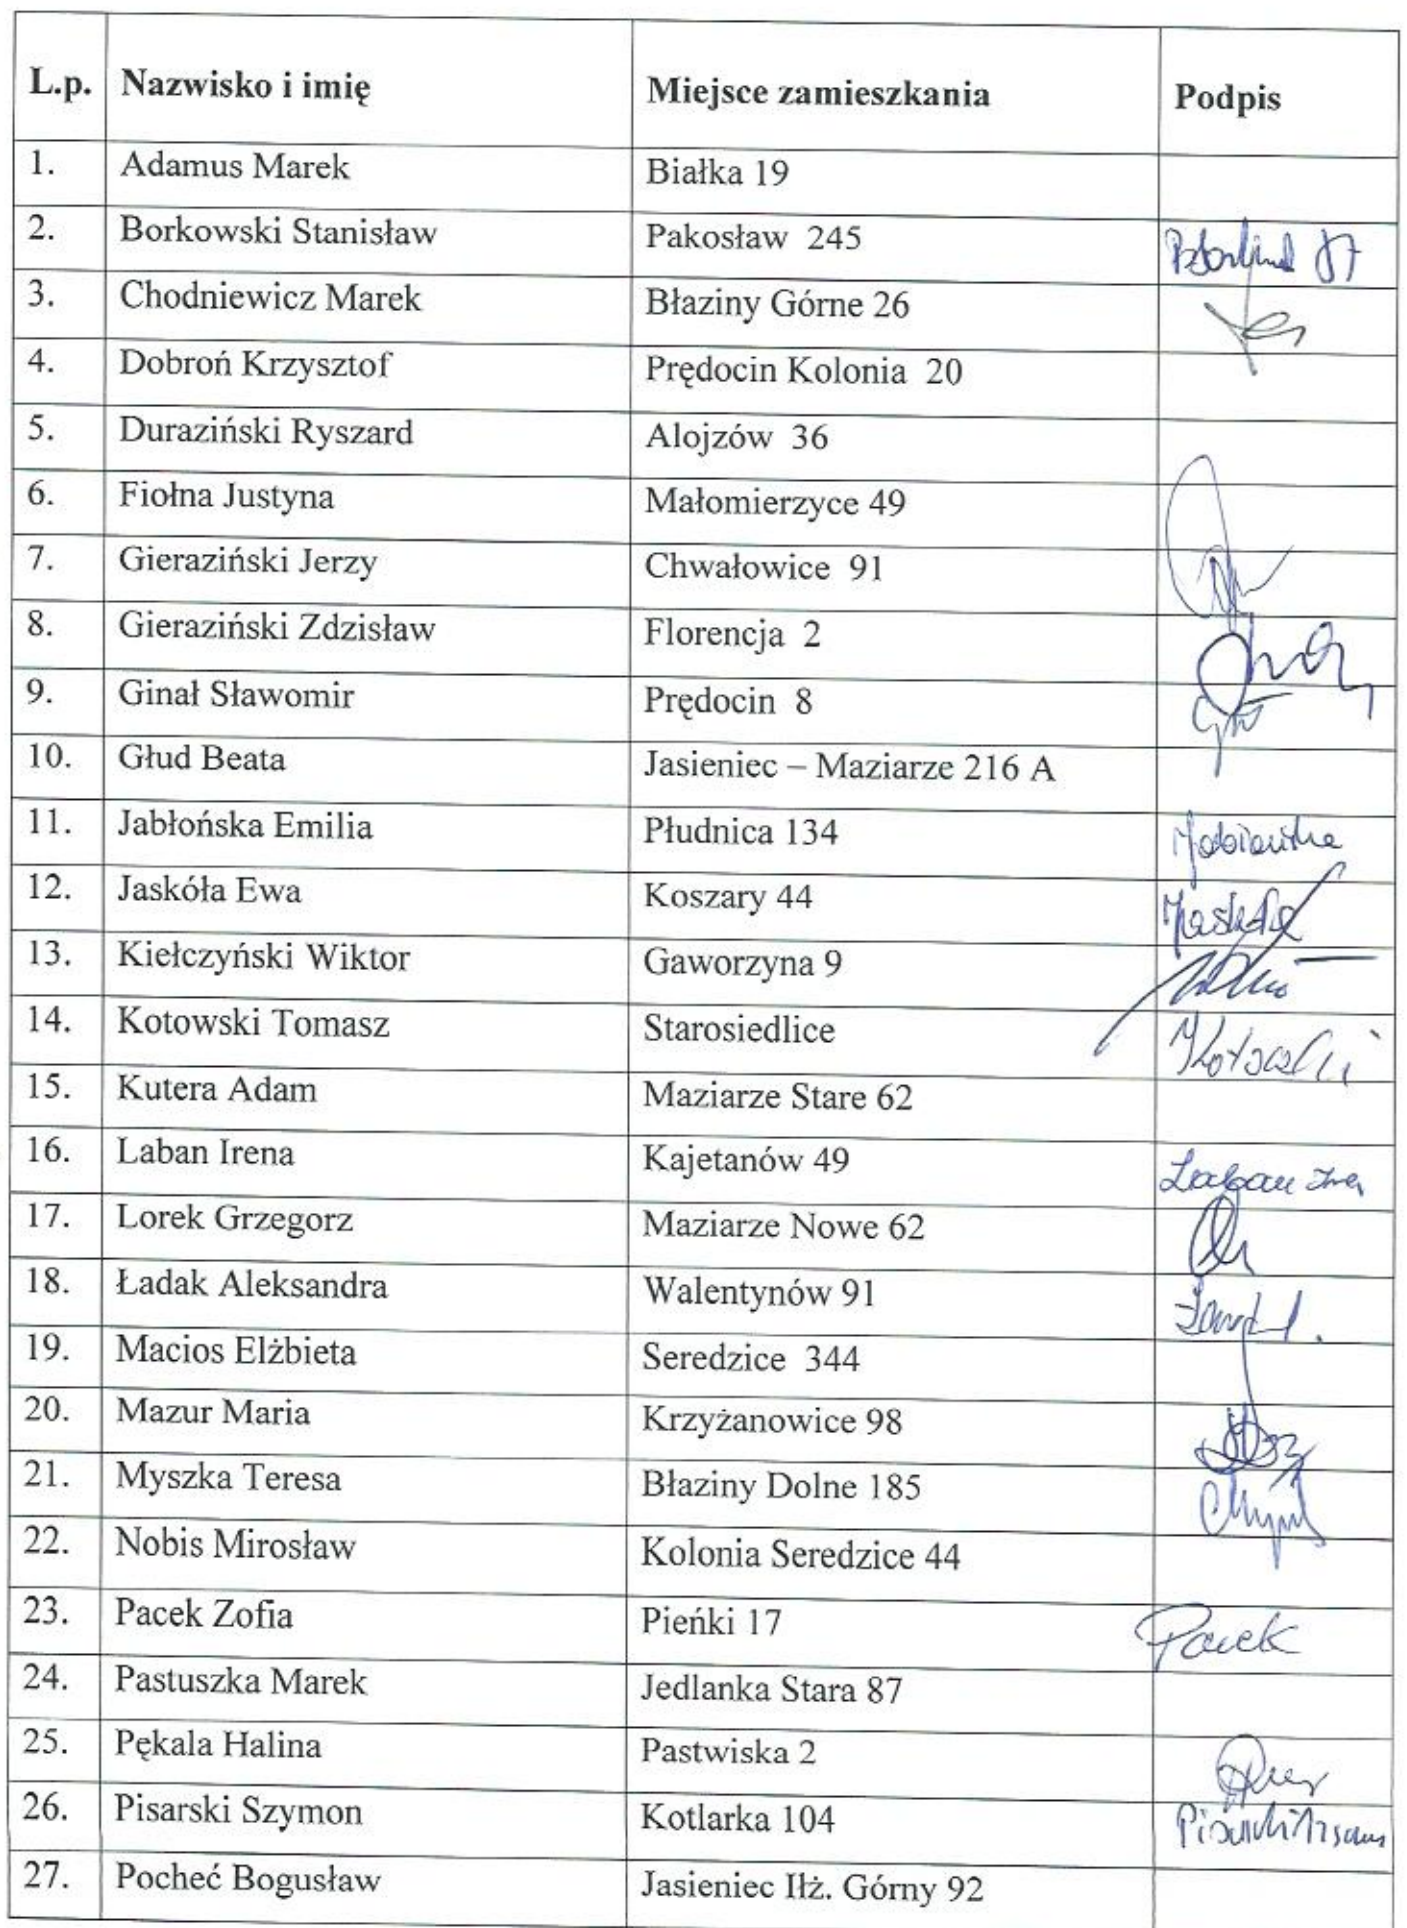 L.p. Nazwisko i imię Miejsce zamieszkania Podpis
1. Adamus Marek Białka 19
2. Borkowski Stanisław Pakosław 245
3. Chodniewicz Marek Błaziny Górne 26
4. Dobroń Krzysztof Prędocin Kolonia 20
5. Duraziński Ryszard Alojzów 36
6. Fiołna Justyna Małomierzyce 49
7. Gieraziński Jerzy Chwałowice 91
8. Gieraziński Zdzisław Florencja 2
9. Ginał Sławomir Prędocin 8
10. Głud Beata Jasieniec – Maziarze 216 A
11. Jabłońska Emilia Płudnica 134
12. Jaskóła Ewa Koszary 44
13. Kiełczyński Wiktor Gaworzyna 9
14. Kotowski Tomasz Starosiedlice
15. Kutera Adam Maziarze Stare 62
16. Laban Irena Kajetanów 49
17. Lorek Grzegorz Maziarze Nowe 62
18. Ładak Aleksandra Walentynów 91
19. Macios Elżbieta Seredzice 344
20. Mazur Maria Krzyżanowice 98
21. Myszka Teresa Błaziny Dolne 185
22. Nobis Mirosław Kolonia Seredzice 44
23. Pacek Zofia Pieńki 17 Pacek
24. Pastuszka Marek Jedlanka Stara 87
25. Pękala Halina Pastwiska 2
26. Pisarski Szymon Kotlarka 104
27. Pocheć Bogusław Jasieniec Iłż. Górny 92